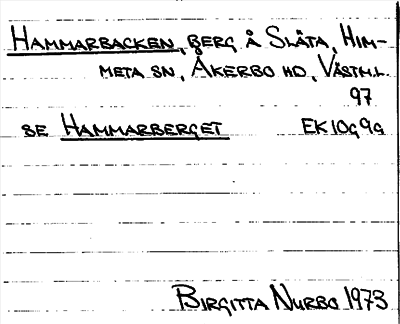 HAMMARBACKEN, BERG Å SLÄTA, HIM-
META SN, ÅKERBO HD, VÄSTM.L.
97
SE HAMMARBERGET EK10g9g
BIRGITTA NURBO 1973